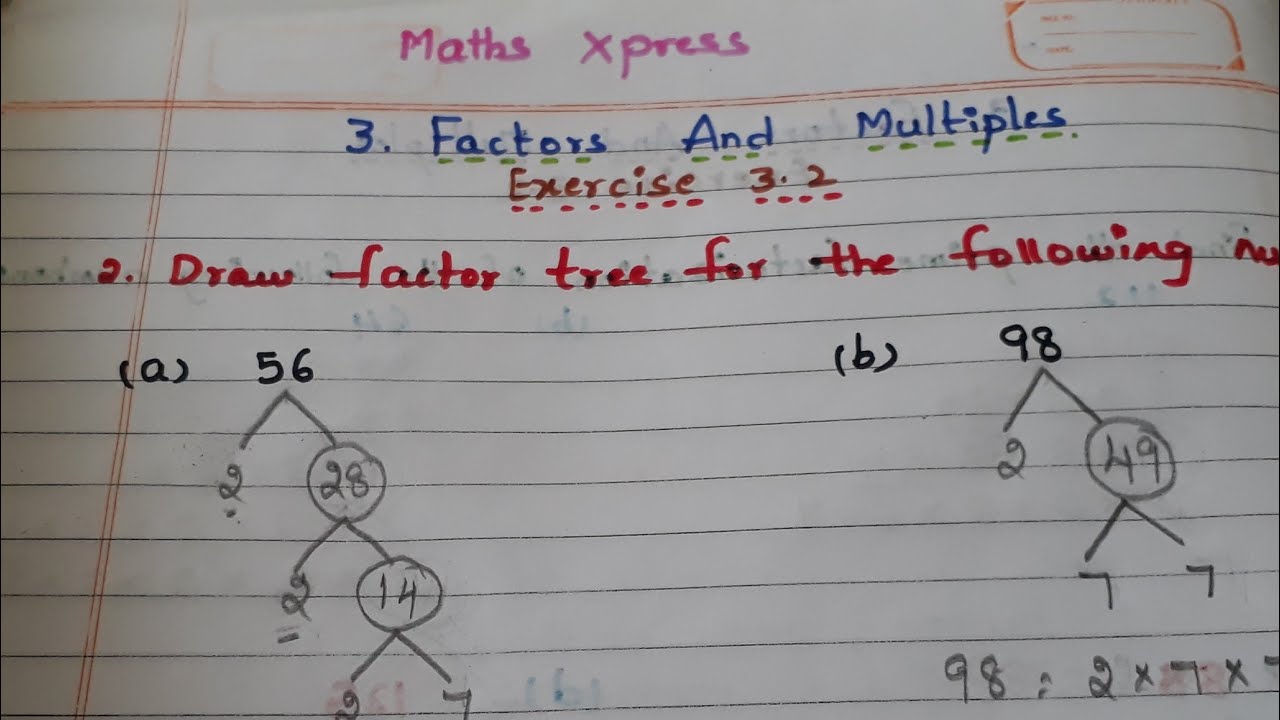 Maths Xpress
3. Factors And Multiples.
Exercise 3.2
2. Draw factor tree for the following
(a) 56
(b) 98
2 28
2 49
2 14
7 7
2 7
98 = 2 × 7 ×